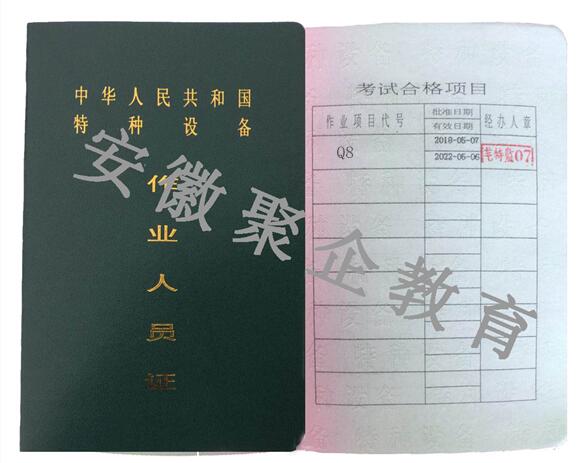 中华人民共和国
特种设备
作业人员证
考试合格项目
作业项目代号
批准日期
有效日期
经办人章
Q8
2018-05-07
2022-05-06
特监07
安徽聚企教育